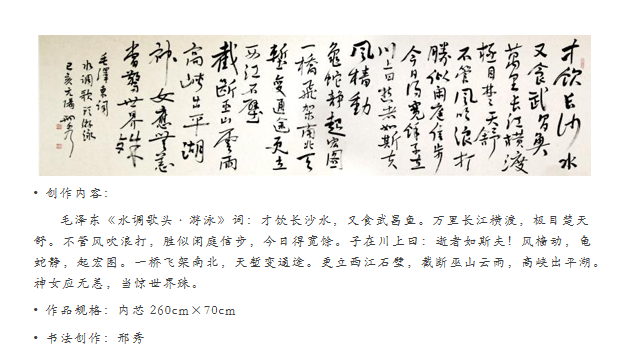 才飲长沙水
又食武昌魚
萬里长江横渡
極目楚天舒
不管风吹浪打
勝似闲庭信步
今日得寬馀子在
川上曰逝者如斯夫
風樯動
龜蛇静起宏圖
一橋飛架南北天
塹变通途更立
西江石壁
截断巫山雲雨
高峡出平湖
神女應無恙
當驚世界殊
毛澤東詞
水调歌头游泳
• 创作内容：
毛泽东《水调歌头·游泳》词：才饮长沙水，又食武昌鱼。万里长江横渡，极目楚天
舒。不管风吹浪打，胜似闲庭信步，今日得宽馀。子在川上曰：逝者如斯夫！风樯动，龟
蛇静，起宏图。一桥飞架南北，天堑变通途。更立西江石壁，截断巫山云雨，高峡出平湖。
神女应无恙，当惊世界殊。
• 作品规格：内芯 260cm×70cm
• 书法创作：邢秀